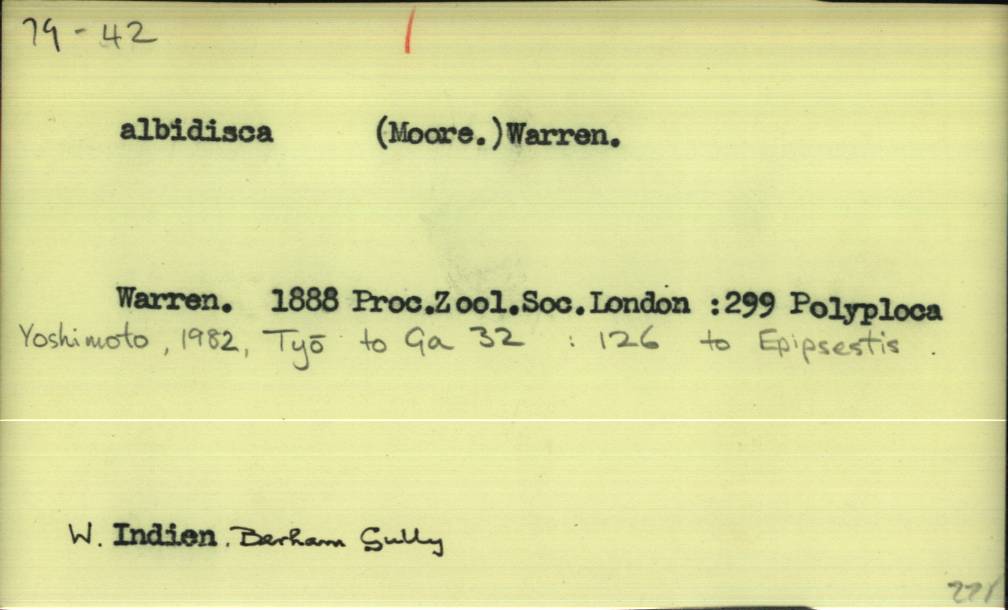 79 - 42
albidisca (Moore.)Warren.
Warren. 1888 Proc.Zool.Soc.London :299 Polyploca
Yoshimoto, 1982, Tyō to Ga 32 : 126 to Epipsestis.
W. Indien. Berham Gully